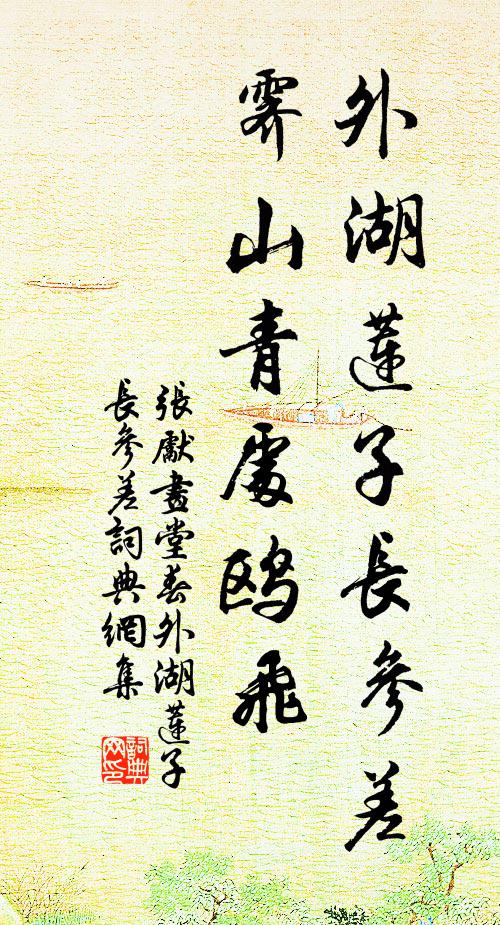 外湖蓮子長參差
霽山青處鷗飛
張獻畫堂春外湖蓮子
長參差詞典網集
詞典
网印